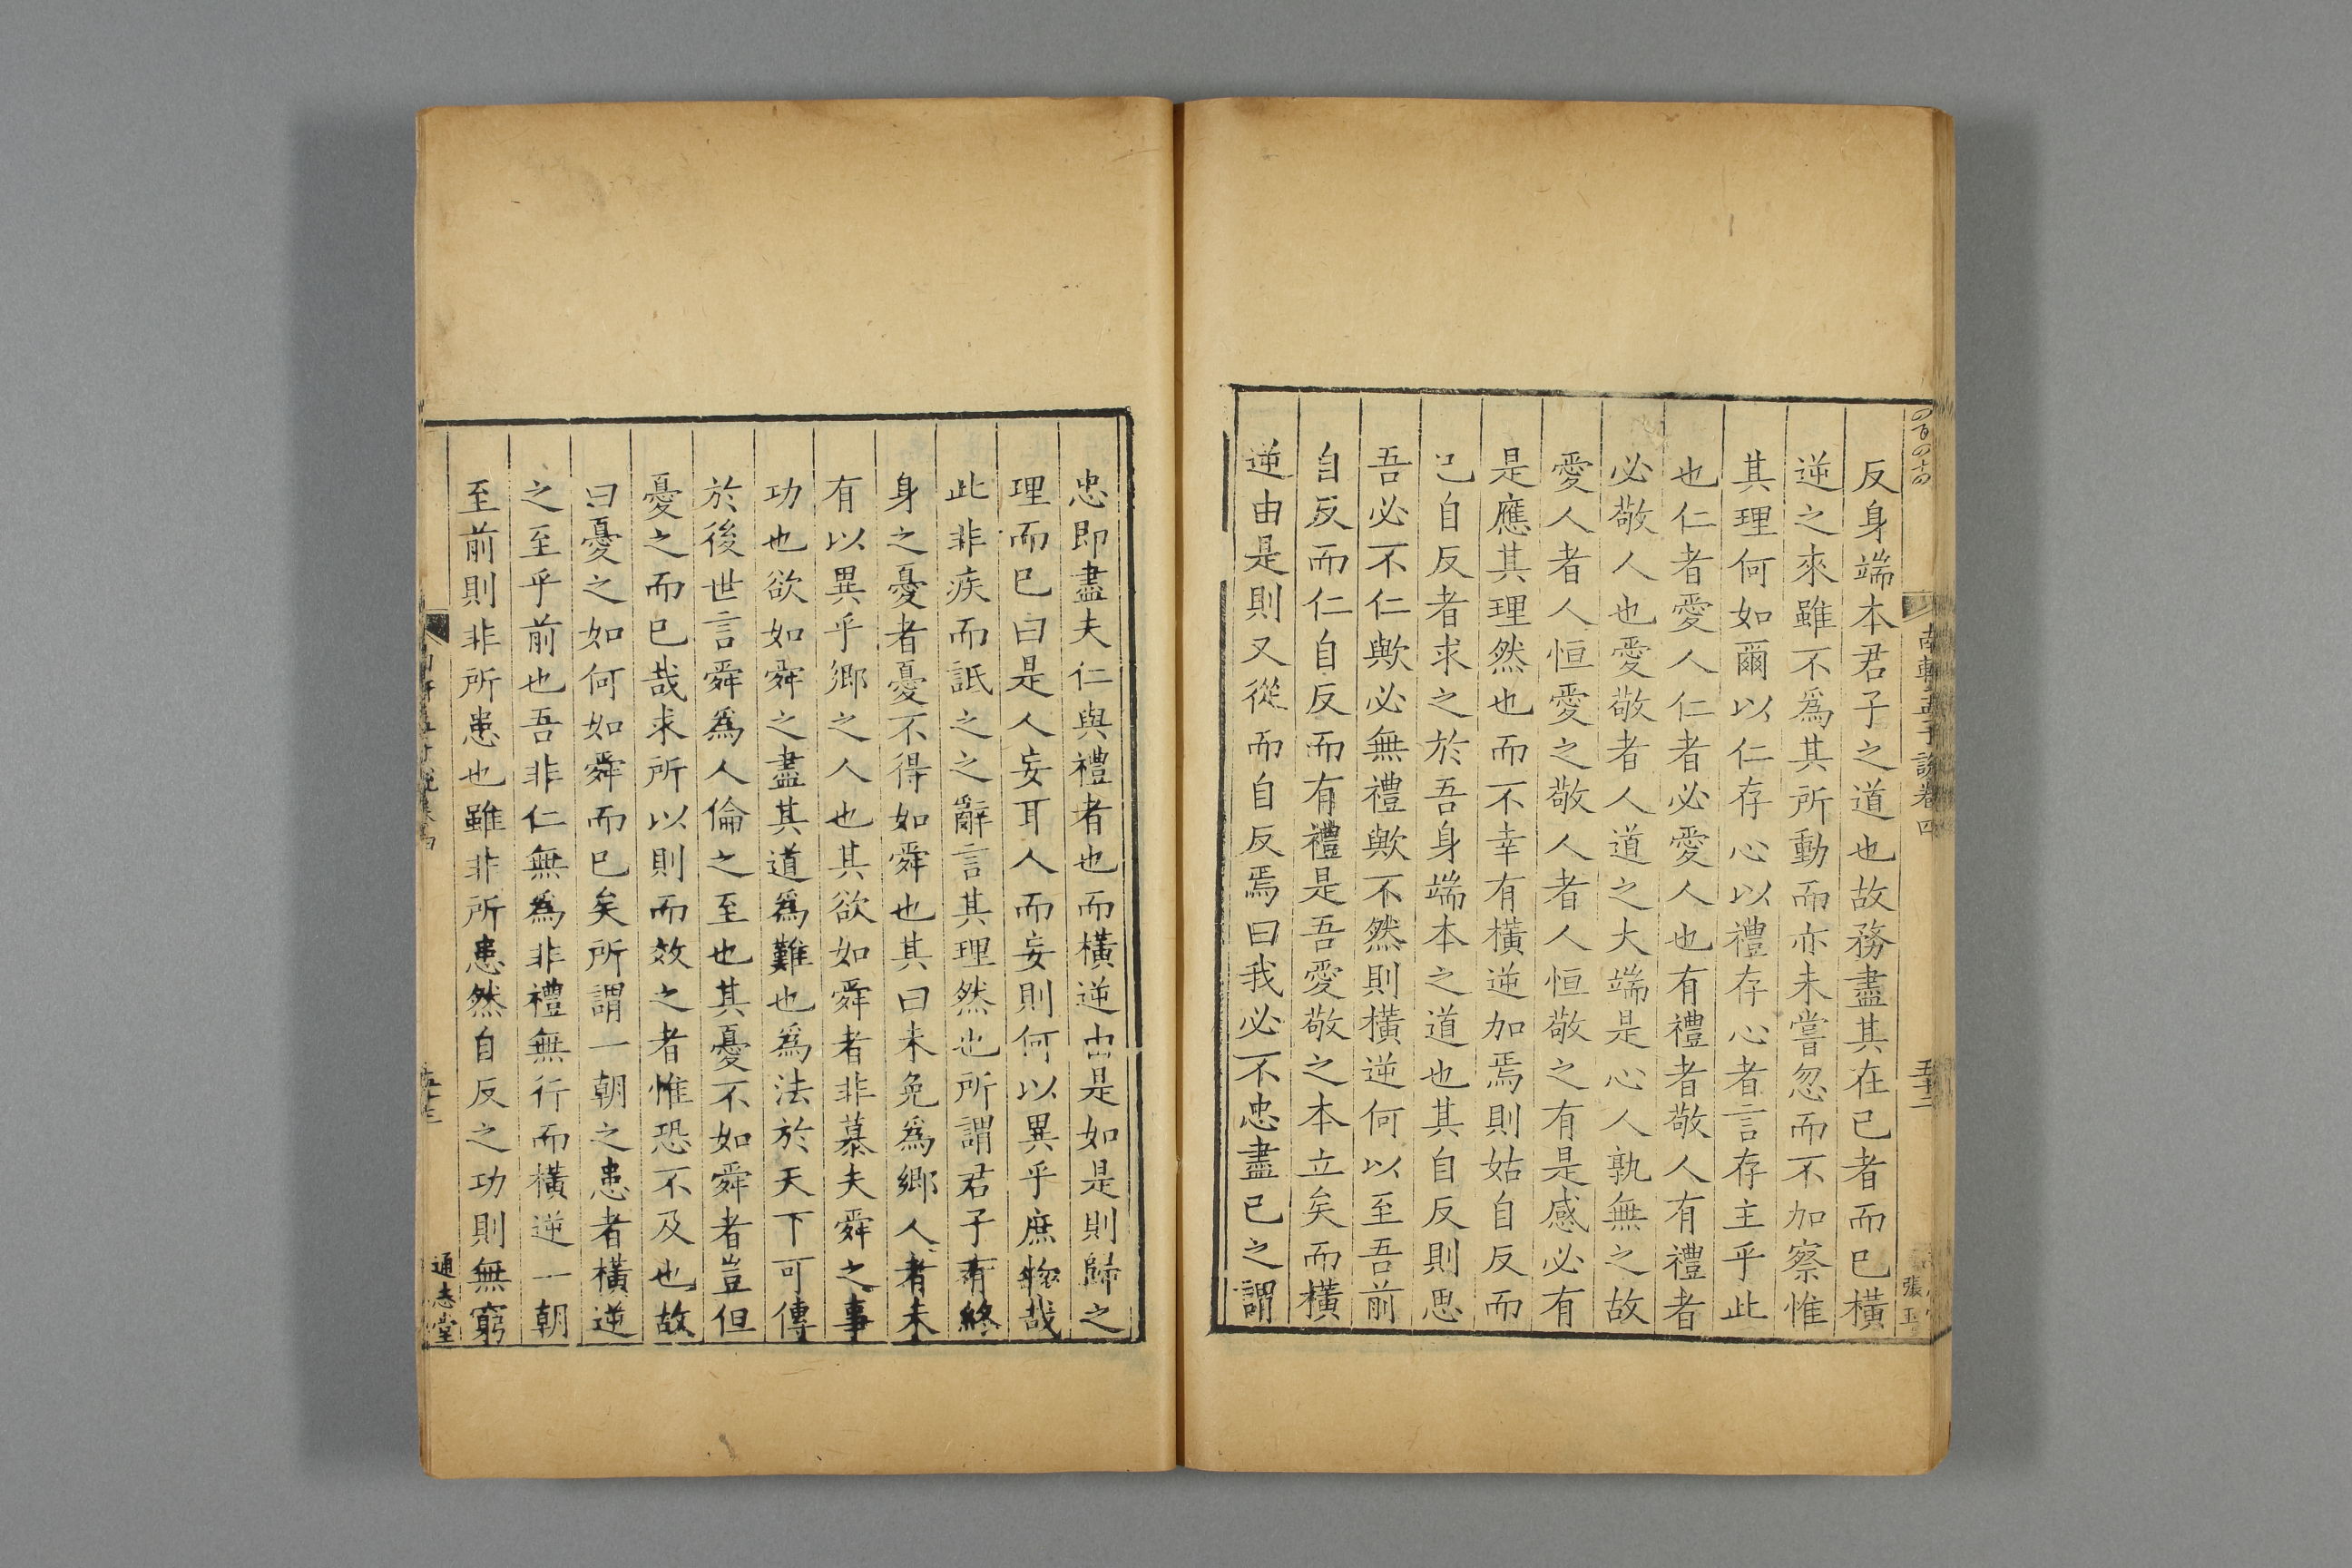 南軒孟子說卷四
張玉
反身端本君子之道也故務盡其在己者而已橫
逆之來雖不爲其所動而亦未嘗忽而不加察惟
其理何如爾以仁存心以禮存心者言存主乎此
也仁者愛人仁者必愛人也有禮者敬人有禮者
必敬人也愛敬者人道之大端是心人孰無之故
愛人者人恒愛之敬人者人恒敬之有是感必有
是應其理然也而不幸有橫逆加焉則姑自反而
已自反者求之於吾身端本之道也其自反則思
吾必不仁歟必無禮歟不然則橫逆何以至吾前
自反而仁自反而有禮是吾愛敬之本立矣而橫
逆由是則又從而自反焉曰我必不忠盡己之謂
忠即盡夫仁與禮者也而橫逆由是如是則歸之
理而已曰是人妄耳人而妄則何以異乎庶物哉
此非疾而詆之之辭言其理然也所謂君子有終
身之憂者憂不得如舜也其曰未免爲鄉人者未
有以異乎鄉之人也其欲如舜者非慕夫舜之事
功也欲如舜之盡其道爲難也爲法於天下可傳
於後世言舜爲人倫之至也其憂不如舜者豈但
憂之而已哉求所以則而效之者惟恐不及也故
曰憂之如何如舜而已矣所謂一朝之患者橫逆
之至乎前也吾非仁無爲非禮無行而橫逆一朝
至前則非所患也雖非所患然自反之功則無窮
通志堂